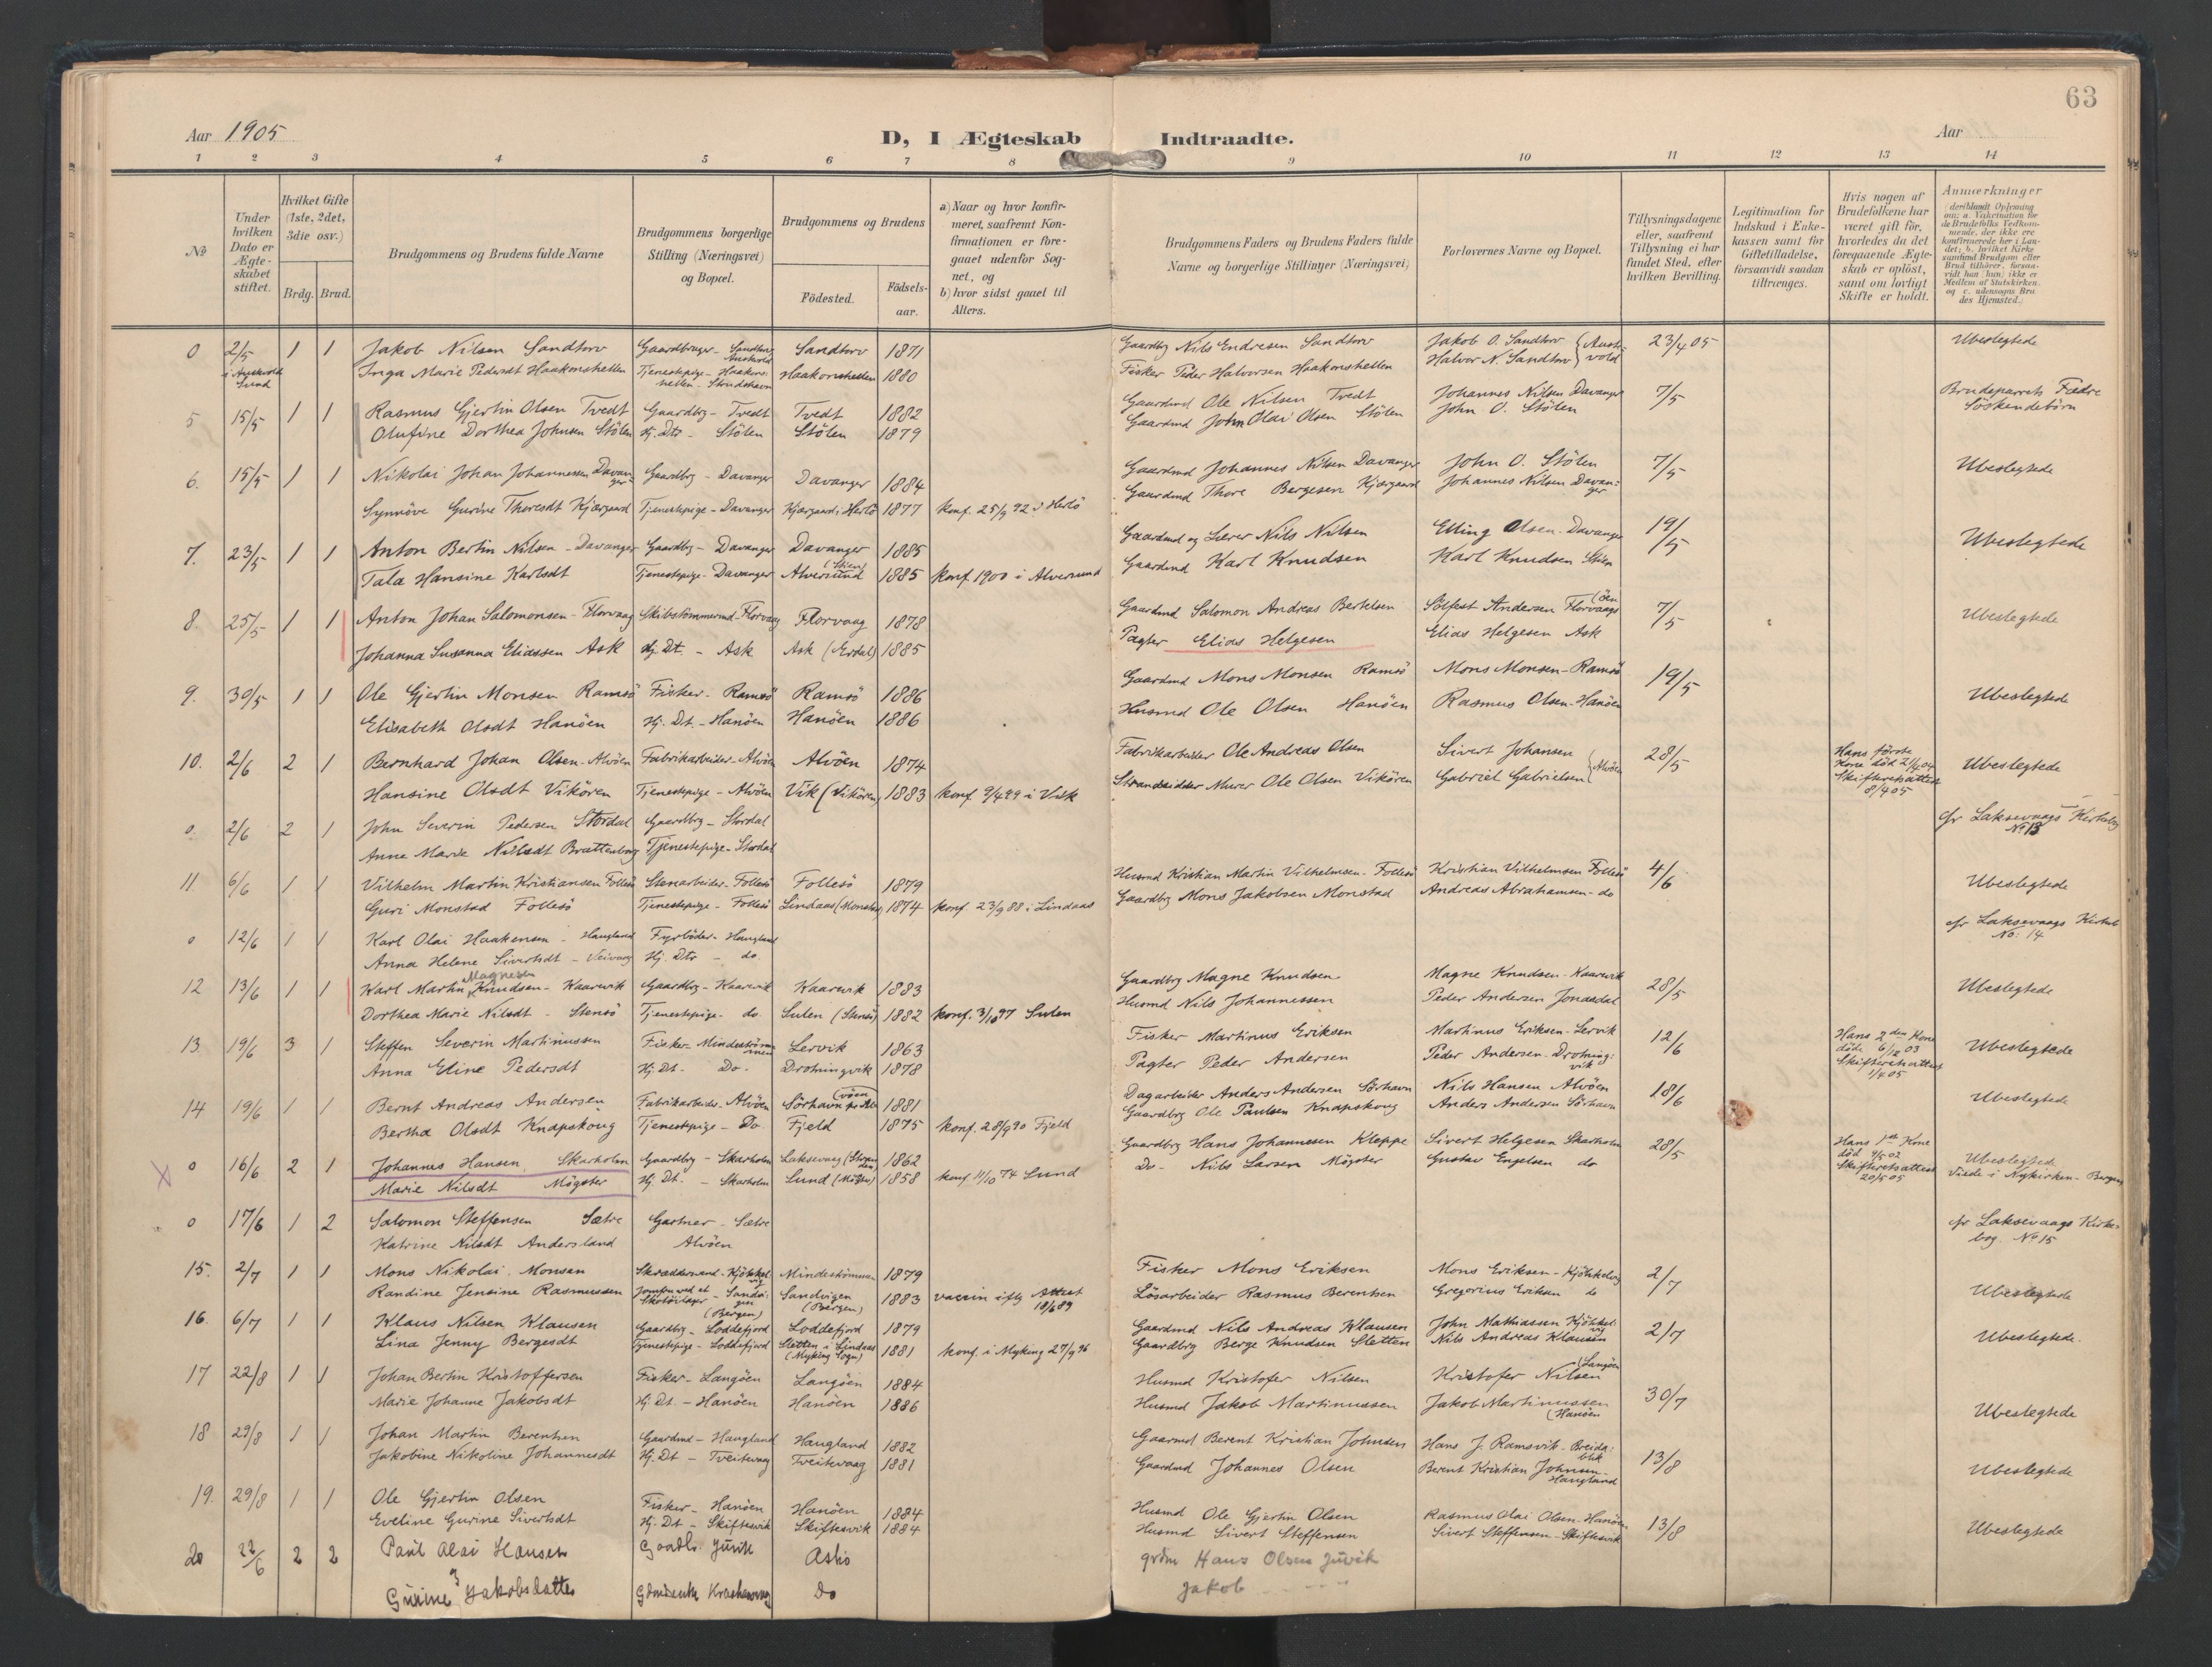 63
Aar 1905
D, I Ægteskab Indtraadte.
Aar
1 2 3 4 5 6 7 8 9 10 11 12 13 14
№
Under hvilken Dato er Ægteskabet stiftet.
Hvilket Gifte (1ste, 2det, 3die osv.)
Brdg. Brud.
Brudgommens og Brudens fulde Navne
Brudgommens borgerlige Stilling (Næringsvei) og Bopæl.
Brudgommens og Brudens
Fødested.
Fødselsaar.
a) Naar og hvor konfirmeret, saafremt Konfirmationen er foregaaet udenfor Sognet, og
b) hvor sidst gaaet til Alters.
Brudgommens Faders og Brudens Faders fulde Navne og borgerlige Stillinger (Næringsvei)
Forlovernes Navne og Bopæl.
Tillysningsdagene eller, saafremt Tillysning ei har fundet Sted, efter hvilken Bevilling.
Legitimation for Indskud i Enkekassen samt for Giftetilladelse, forsaavidt saadan tiltrænges.
Hvis nogen af Brudefolkene har været gift før, hvorledes da det foregaaende Ægteskab er opløst, samt om lovligt Skifte er holdt.
Anmærkninger (deriblandt Oplysning om: a. Vakcination for de Brudefolks Vedkommende, der ikke ere konfirmerede her i Landet; b. hvilket Kirkesamfund Brudgom eller Brud tilhører, forsaavidt han (hun) ikke er Medlem af Statskirken, og c. udensogns Brudes Hjemsted.)
0 2/5 1 1 Jakob Nilsen Sandtorv Gaardbruger - Sandtorv Sandtorv 1871 Gaardbrg Nils Endresen Sandtorv Jakob O. Sandtorv 23/4 05 Ubeslegtede
Inga Marie Pedersdt Haakonshellen Tjenestepige - Haakonshellen Haakonshellen 1880 Fisker Peder Halvorsen Haakonshellen Halvor N. Sandtorv
5 15/5 1 1 Rasmus Gjertin Olsen Tvedt Gaardbrg - Tvedt Tvedt 1882 Gaardmd Ole Nilsen Tvedt Johannes Nilsen Davanger 7/5 Brudeparrets Fædre Söskendebörn
Olufine Dorthea Johnsen Stölen Hj. Dtr - Stölen Stölen 1879 Gaardmd John Olai Olsen Stölen John O. Stölen
6. 15/5 1 1 Nikolai Johan Johannessen Davanger Gaardbrg - Davanger Davanger 1884 Gaardmd Johannes Nilsen Davanger John O. Stölen 7/5 Ubeslegtede
Synnöve Gurine Thoresdt Kjærgaard Tjenestepige - Davanger Kjærgaard i Herlö 1877 konf. 25/9 92 i Herlö Gaardmd Thore Bergesen Kjærgaard Johannes Nilsen Davanger
7. 23/5 1 1 Anton Bertin Nilsen - Davanger Gaardbrg - Davanger Davanger 1885 Gaardmd og Lærer Nils Nilsen Elling Olsen - Davanger 19/5 Ubeslegtede
Tala Hansine Karlsdt Tjenestepige - Davanger Alversund (Stien) 1885 konf. 1900 i Alversund Gaardmd Karl Knudsen Karl Knudsen Stien
8. 25/5 1 1 Anton Johan Salomonsen - Florvaag Skibstömmermd - Florvaag Florvaag 1878 Gaardmd Salomon Andreas Bertelsen Sölfest Andersen Florvaagöen 7/5 Ubeslegtede
Johanna Susanna Eliassen Ask Hj. Dt. - Ask Ask (Erdal) 1885 Pagter Elias Helgesen Elias Helgesen Ask
9. 30/5 1 1 Ole Gjertin Monsen Ramsö Fisker - Ramsö Ramsö 1886 Gaardmd Mons Monsen Ramsö Mons Monsen - Ramsö 19/5 Ubeslegtede
Elisabeth Olsdt Hanöen Hj. Dt. - Hanöen Hanöen 1886 Husmd Ole Olsen Hanöen Rasmus Olsen - Hanöen
10. 2/6 2 1 Bernhard Johan Olsen - Alvöen Fabrikarbeider - Alvöen Alvöen 1874 Fabrikarbeider Ole Andreas Olsen Sivert Johansen (Alvöen 28/5 Hans förste Kone död 21/4 04 Skifteretsattest 8/4 05 Ubeslegtede
Hansine Olsdt Vikören Tjenestepige - Alvöen Vik (Vikören) 1883 konf. 9/4 99 i Vik Strandsidder Murer Ole Olsen Vikören Gabriel Gabrielsen
0. 2/6 2 1 John Severin Pedersen Stordal Gaardbrg - Stordal cfr Laksevaags Kirkebog No 13
Anne Marie Nilsdt Brattenborg Tjenestepige - Stordal
11. 6/6 1 1 Vilhelm Martin Kristiansen Follesö Stenarbeider - Follesö Follesö 1879 Husmd Kristian Martin Vilhelmsen - Follesö Kristian Vilhelmsen Follesö 4/6 Ubeslegtede
Guri Monstad Follesö Tjenestepige - Follesö Lindaas (Monstad) 1874 konf. 23/9 88 i Lindaas Gaardbrg Mons Jakobsen Monstad Andreas Abrahamsen - do
0 12/6 1 1 Karl Olai Haakensen - Haugland Fyrböder - Haugland cfr Laksevaags Kirkeb. No: 14
Anna Helene Sivertsdt - Veivaag Hj. Dtr - do.
12 13/6 1 1 Karl Martin Magnesen Knudsen - Kaarevik Gaardbrg - Kaarevik Kaarevik 1883 Gaardbrg Magne Knudsen Magne Knudsen - Kaarevik 28/5 Ubeslegtede
Dorthea Marie Nilsdt - Stensö Tjenestepige - do. Sulen (Stensö) 1882 konf. 3/10 97 Sulen Husmd Nils Johannessen Peder Andersen Jonasdal
13. 19/6 3 1 Steffen Severin Martinussen Fisker - Mindeströmmen Lervik 1863 Fisker Martinus Eriksen Martinus Eriksen - Lervik 12/6 Hans 2den Kone döde 6/12 03 Skifteretsattest 1/4 05 Ubeslegtede
Anna Eline Pedersdt Hj. Dt. Do. Drotningvik 1878 Pagter Peder Andersen Peder Andersen - Drotningvik
14 19/6 1 1 Bernt Andreas Andersen Fabrikarbeider - Alvöen Sörhavn pr Alvöen 1881 Dagarbeider Anders Andersen Sörhavn Nils Hansen Alvöen 18/6 Ubeslegtede
Bertha Olsdt Knapskoug Tjenestepige - Do. Fjeld 1875 konf. 28/9 90 Fjeld Gaardbrg Ole Paulsen Knapskoug Anders Andersen Sörhavn
0 16/6 2 1 Johannes Hansen Skarholm Gaardbrg - Skarholm Laksevaag 1862 Gaardbrg Hans Johannesen Kleppe Sivert Helgesen Skarholm 28/5 Hans 1st Kone död 9/5 02 Skifteretsattest 20/5 05 Ubeslegtede Viede i Nykirken - Bergen
Marie Nilsdt Mögster Hj. Dt. - Skarholm Sund (Mögster) 1858 konf. 11/10 74 Sund Do. Nils Larsen Mögster Gustav Engelsen do
0 17/6 1 2 Salomon Steffensen Sætre Gartner - Sætre cfr Laksevaags Kirkebog. No 15
Katrine Nilsdt Andersland Alvöen
15. 2/7 1 1 Mons Nikolai Monsen Skræddersvend - Kjökkelvig Mindeströmmen 1879 Fisker Mons Eriksen Mons Eriksen - Kjökkelvig 2/7 Ubeslegtede
Randine Jensine Rasmussen Jomfru ved et Skotöilager - Sandvigen (Bergen) Sandvigen (Bergen) 1883 vaccin iflg Attest 18/6 89 Lösarbeider Rasmus Berentsen Gregorius Eriksen do
16. 6/7 1 1 Klaus Nilsen Klausen Gaardbrg - Loddefjord Loddefjord 1879 Gaardmd Nils Andreas Klausen John Mathiassen Kjökkelvig 2/7 Ubeslegtede.
Lina Jenny Bergesdt Tjenestepige - Loddefjord Sletten i Lindaas (Myking Sogn) 1881 konf. i Myking 27/9 96 Gaardbrg Berge Knudsen Sletten Nils Andreas Klausen
17 22/8 1 1 Johan Bertin Kristoffersen Fisker - Langöen Langöen 1884 Husmd Kristofer Nilsen Kristofer Nilsen (Langöen 30/7 Ubeslegtede
Marie Johanne Jakobsdt Hj. Dt. - Hanöen Hanöen 1886 Husmd Jakob Martinussen Jakob Martinussen (Hanöen
18 29/8 1 1 Johan Martin Berentsen Gaardmd - Haugland Haugland 1882 Gaarmd Berent Kristian Johnsen Hans J. Ramsvik - Breidablik 13/8 Ubeslegtede
Jakobine Nikoline Johannesdt Hj. Dt - Tveitevaag Tveitevaag 1881 Gaardmd Johannes Olsen Berent Kristian Johnsen - Haugland
19. 29/8 1 1 Ole Gjertin Olsen Fisker - Hanöen Hanöen 1884 Husmd Ole Gjertin Olsen Rasmus Olai Olsen - Hanöen 13/8 Ubeslegtede
Eveline Gurine Sivertsdt Hj. Dt - Skiftesvik Skiftesvik 1884 Husmd Sivert Steffensen Sivert Steffensen - Skiftesvik
20 22/6 2 2 Paul Olai Hansen Juvik Hans Olsen Juvik
Gurine Jakobsdatter Do Jakob